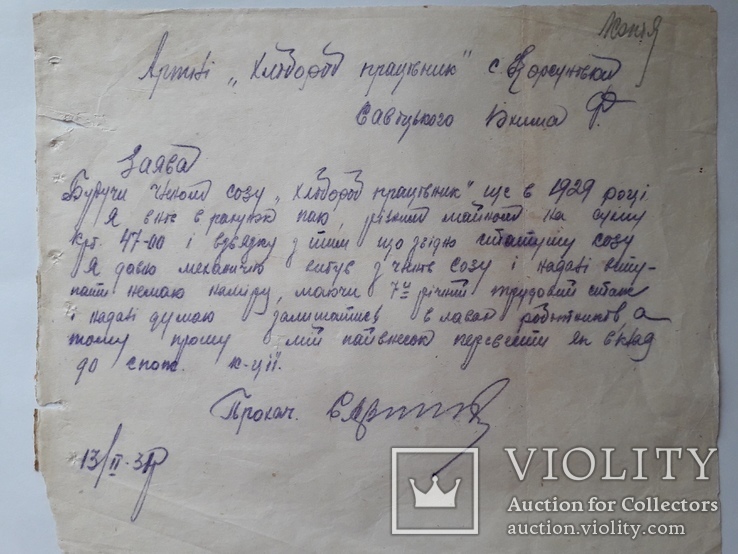 Копія
Артілі „Хлібороб працівник" с.
Савіцького Юхима Ф.
Заява
Будучи членом созу „Хлібороб працівник" ще в 1929 році
Я вніс в рахунок паю, різним майном на суму
крб. 47-00 і взвязку з тим що згідно статуту созу
Я давно механично вибув з членів созу і надалі всту-
пати немаю наміру, маючи 7и річний трудовий стаж
і надалі думаю залишатись в лавах робітників, а
тому прошу мій пайвнесок перевести як вклад
до спож. к-ції.
Прохач.
13/II-31р
VIOLITY
Auction for Collectors
auction.violity.com